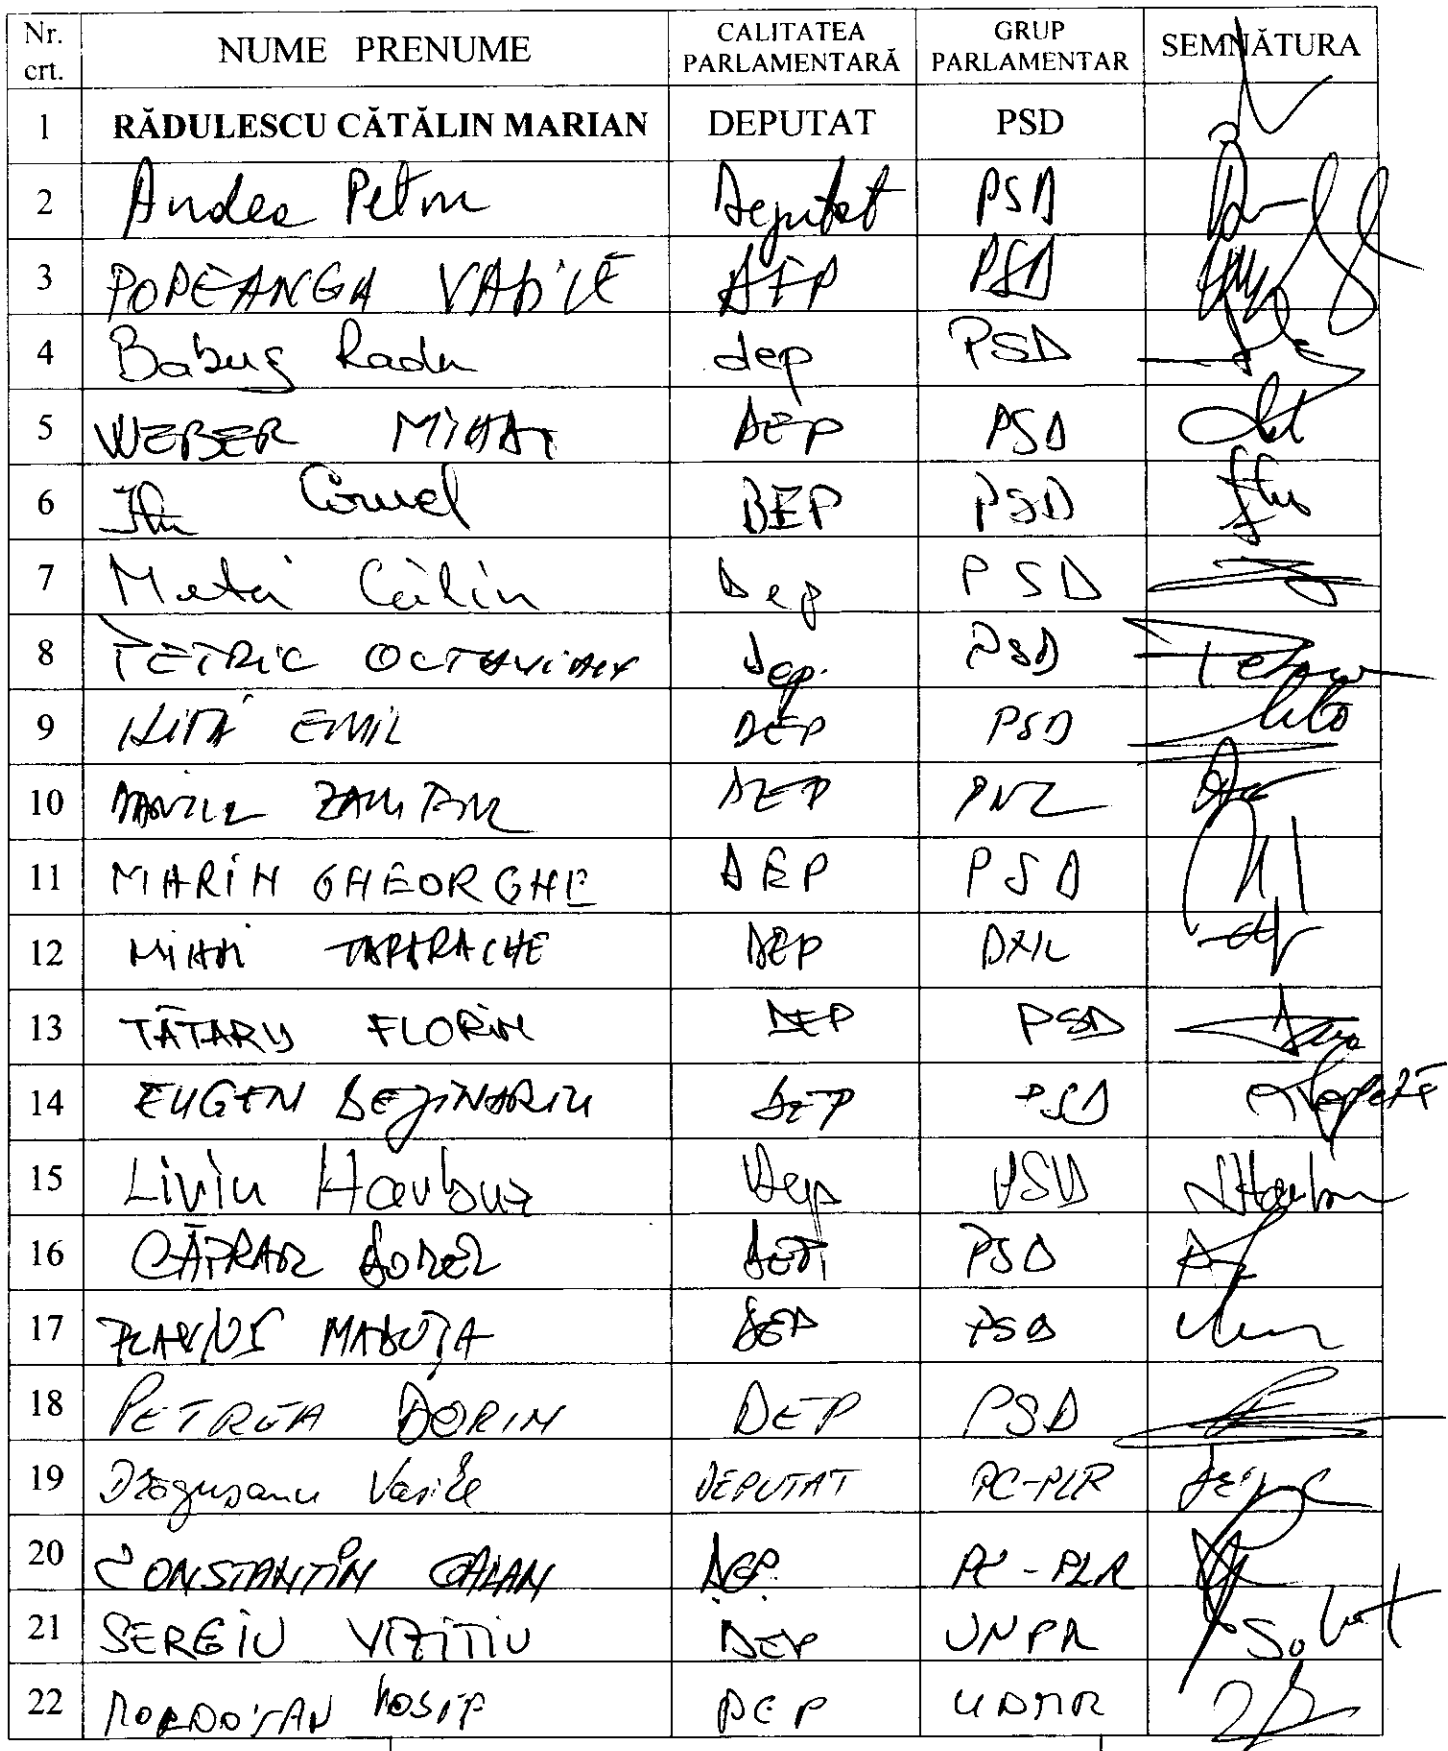 Nr. crt. NUME PRENUME CALITATEA PARLAMENTARĂ GRUP PARLAMENTAR SEMNĂTURA
1 RĂDULESCU CĂTĂLIN MARIAN DEPUTAT PSD
2 Andea Petru Deputat PSD
3 POPEANGA VASILE DEP PSD
4 Babuș Radu dep PSD
5 WEBER MIHAI DEP PSD
6 Itu Cornel DEP PSD
7 Matei Călin Dep PSD
8 PETRIC OCTAVIAN Dep. PSD
9 NIȚĂ EMIL DEP PSD
10 DANIEL ZAMFIR DEP PNL
11 MARIN GHEORGHE DEP PSD
12 MIHAI DEP
13 TĂTARU FLORIN DEP PSD
14 EUGEN BEJINARIU DEP PSD
15 Liviu Harbuz Dep PSD Harbuz
16 CĂPRAR DOREL DEP PSD
17 DEP PSD
18 PETREA DORIN DEP PSD
19 Drăgușanu Vasile DEPUTAT PC-PLR
20 CONSTANTIN GALAN DEP. PC-PLR
21 SERGIU VIZITIU DEP UNPR
22 DEP UDMR